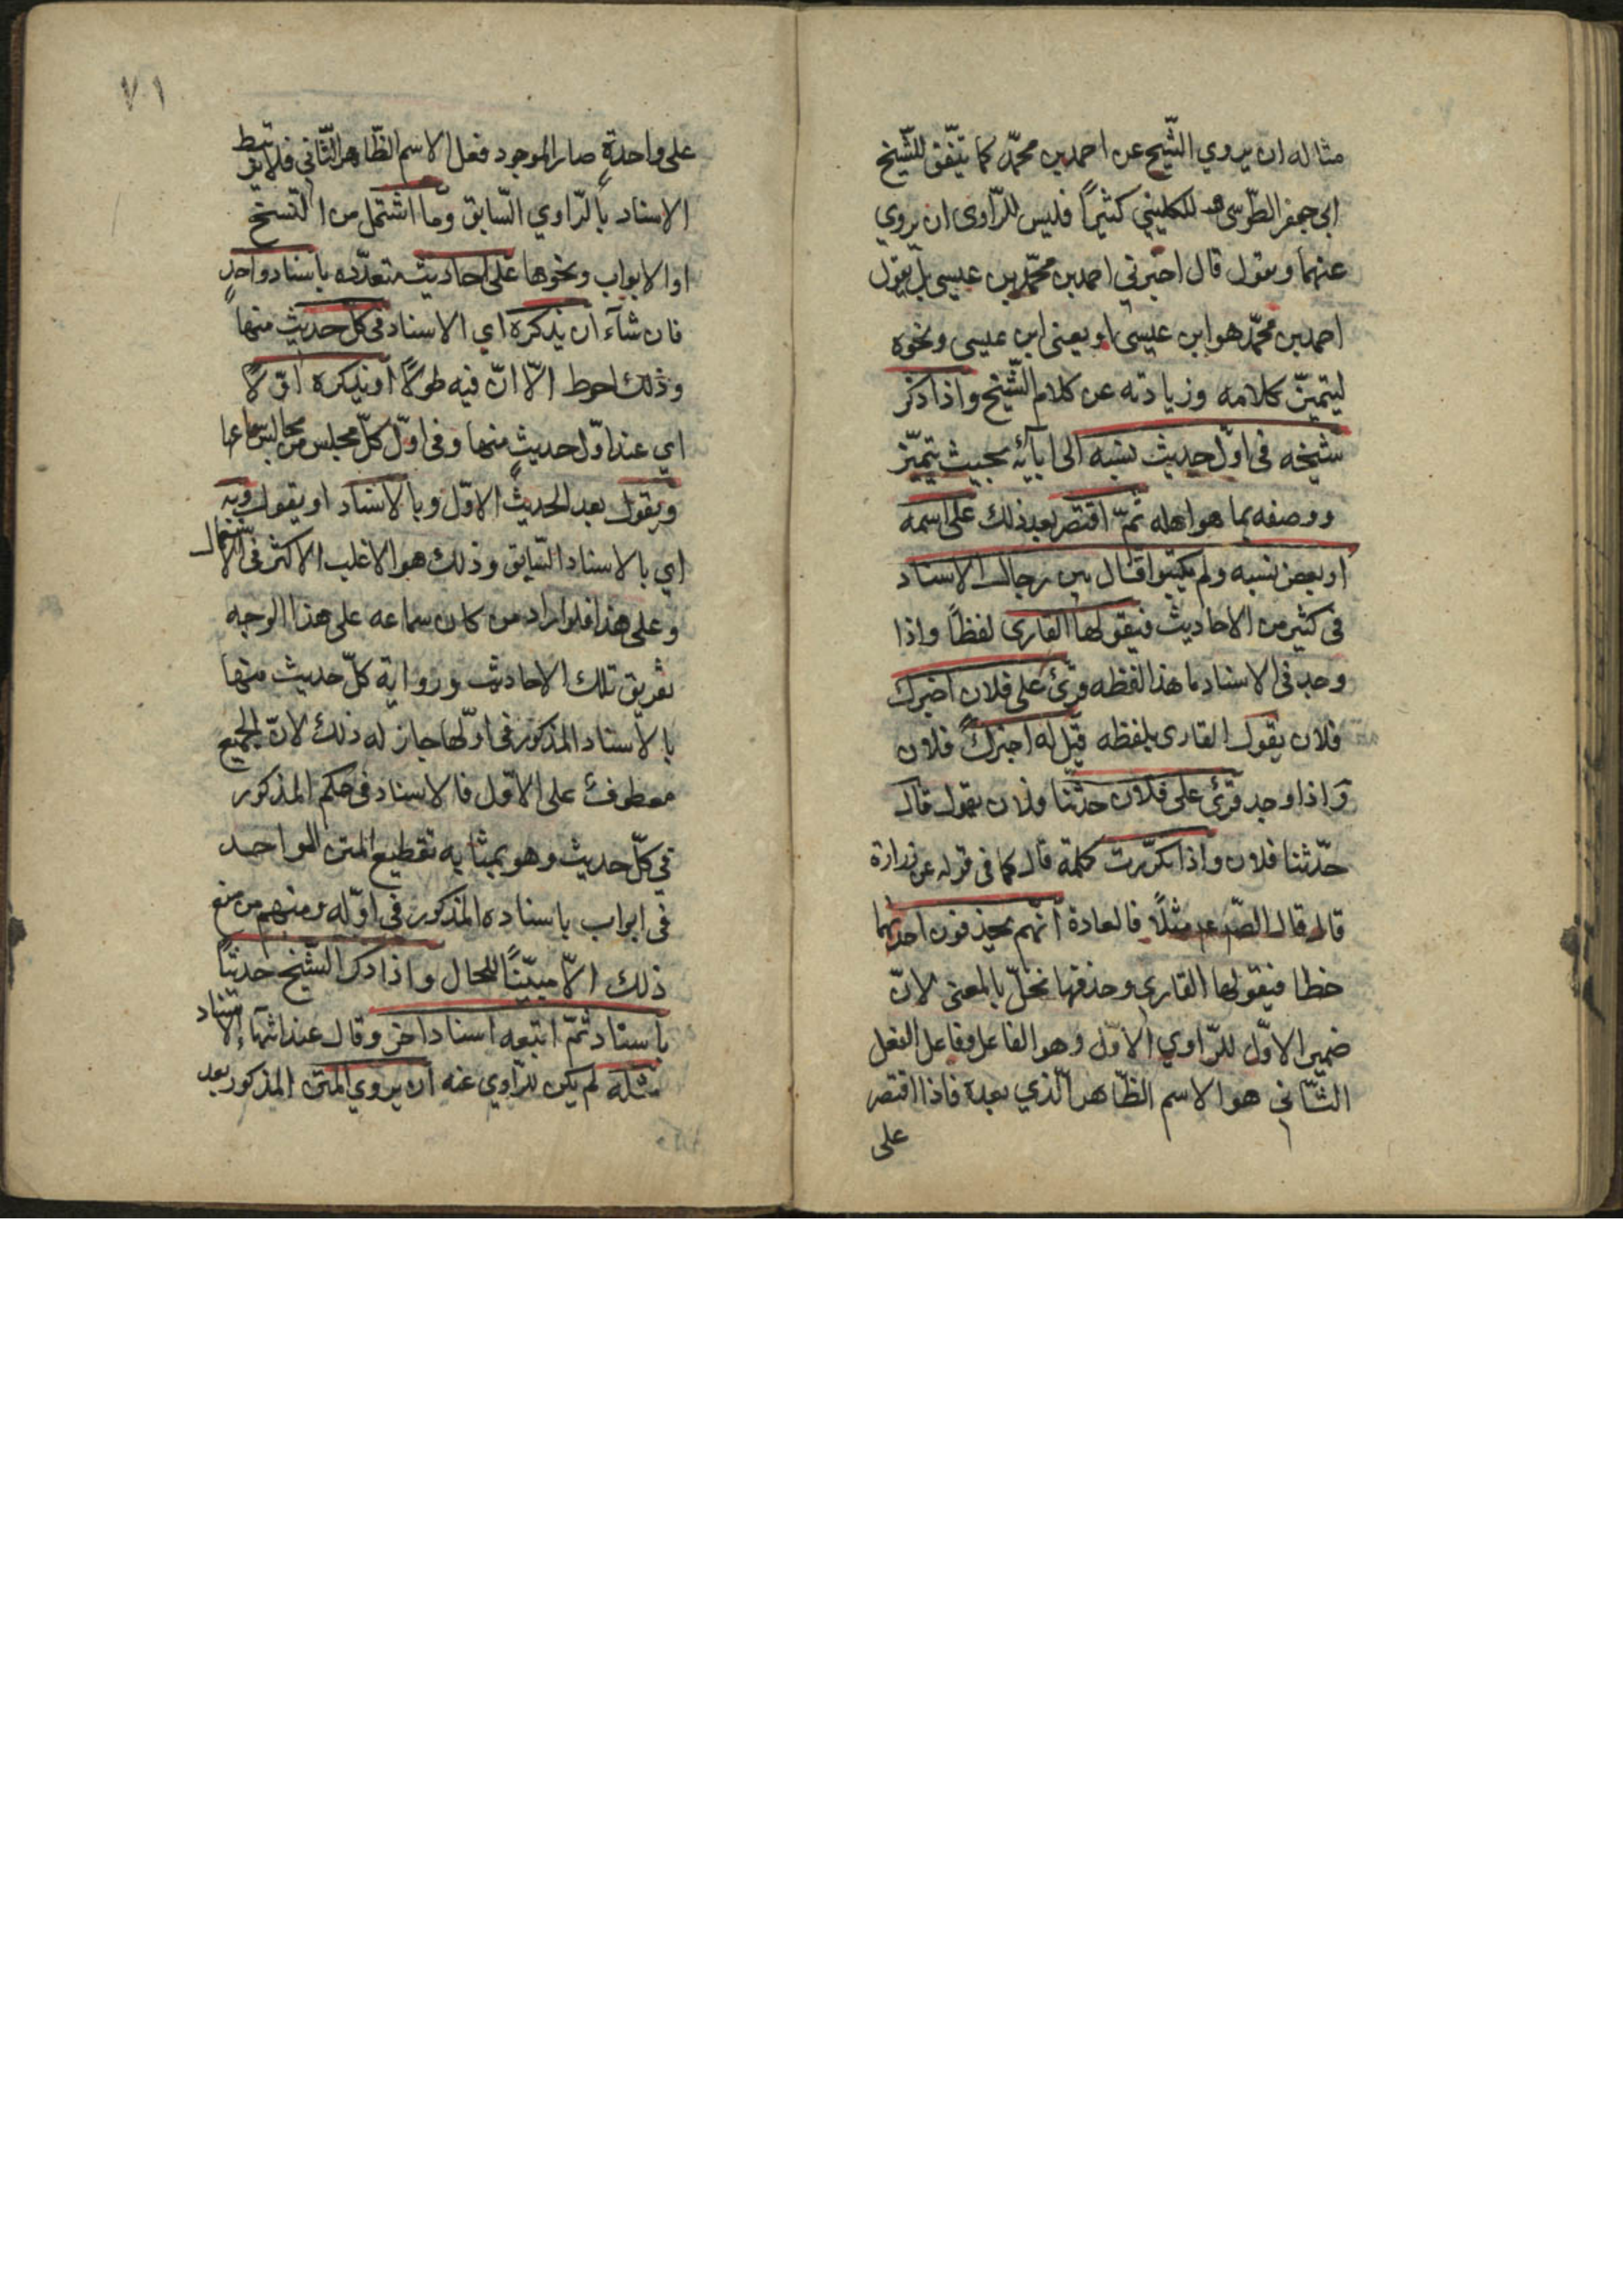 مثاله ان يروي الشّيخ عن احمد بن محمّد كما يتّفق للشّيخ
ابي جعفر الطّوسى و للكليني كثيرًا فليس للرّاوى ان يروي
عنهما ويقول قال اخبرني احمد بن محمّد بن عيسى بل يقول
احمد بن محمّد هو ابن عيسى او يعنى ابن عيسى ونحوه
ليتميّز كلامه وزيادته عن كلام الشّيخ واذا ذكر
شيخه فى اوّل حديث نسبه الى ابآئه بحيث يتميّز
ووصفه بما هو اهله ثمّ اقتصر بعد ذلك على اسمه
او بعض نسبه ولم يكتبوا قال بين رجال الاسناد
فى كثير من الاحاديث فيقولها القارى لفظًا واذا
وجد فى الاسناد ما هذا لفظه قرئ على فلان اخبرك
فلان يقول القارى بلفظه قيل له اخبرك فلان
واذا وجد قرئ على فلان حدّثنا فلان يقول قال
حدّثنا فلان واذا تكرّرت كلمة قال كما فى قوله عن زرارة
قال قال الصّ عم مثلًا فالعادة انّهم يحذفون احديهما
خطا فيقولها القارى وحذفها نخلّ بالمعنى لانّ
ضمير الاوّل للرّاوي الاوّل وهو الفاعل وفاعل الفعل
الثّاني هو الاسم الظّاهر الّذي بعده فاذا اقتصر
على
٧١
على واحدةٍ صار الموجود فعل الاسم الظّاهر الثّاني فلا يرتبط
الاسناد بالرّاوي السّابق وما اشتمل من النّسخ
او الابواب ونحوها على احاديث متعدّده باسناد واحدٍ
فان شآء ان يذكره اي الاسناد فى كلّ حديث منها
وذلك احوط الّا انّ فيه طولًا او يذكره اوّلًا
اي عند اوّل حديثٍ منها وفى اوّل كلّ مجلس من مجالس سماعها
ويقول بعد الحديث الاوّل وبالاسناد او يقول وبه
اي بالاسناد السّابق وذلك هو الاغلب الاكثر فى الاستعمال
وعلى هذا فلو اراد من كان سماعه على هذا الوجه
تفريق تلك الاحاديث ورواية كلّ حديث منها
بالاسناد المذكور فى اوّلها جاز له ذلك لانّ الجميع
معطوف على الاوّل فالاسناد فى حكم المذكور
في كلّ حديث وهو بمثابه تقطيع المتن الواحد
فى ابواب باسناده المذكور فى اوّله ومنهم من منع
ذلك الّا مبيّنًا للحال واذا ذكر الشّيخ حديثًا
باسناد ثمّ اتبعه اسنادا اخر وقال عند انتهآء الاسناد
مثله لم يكن للرّاوي عنه ان يروي المتن المذكور بعد